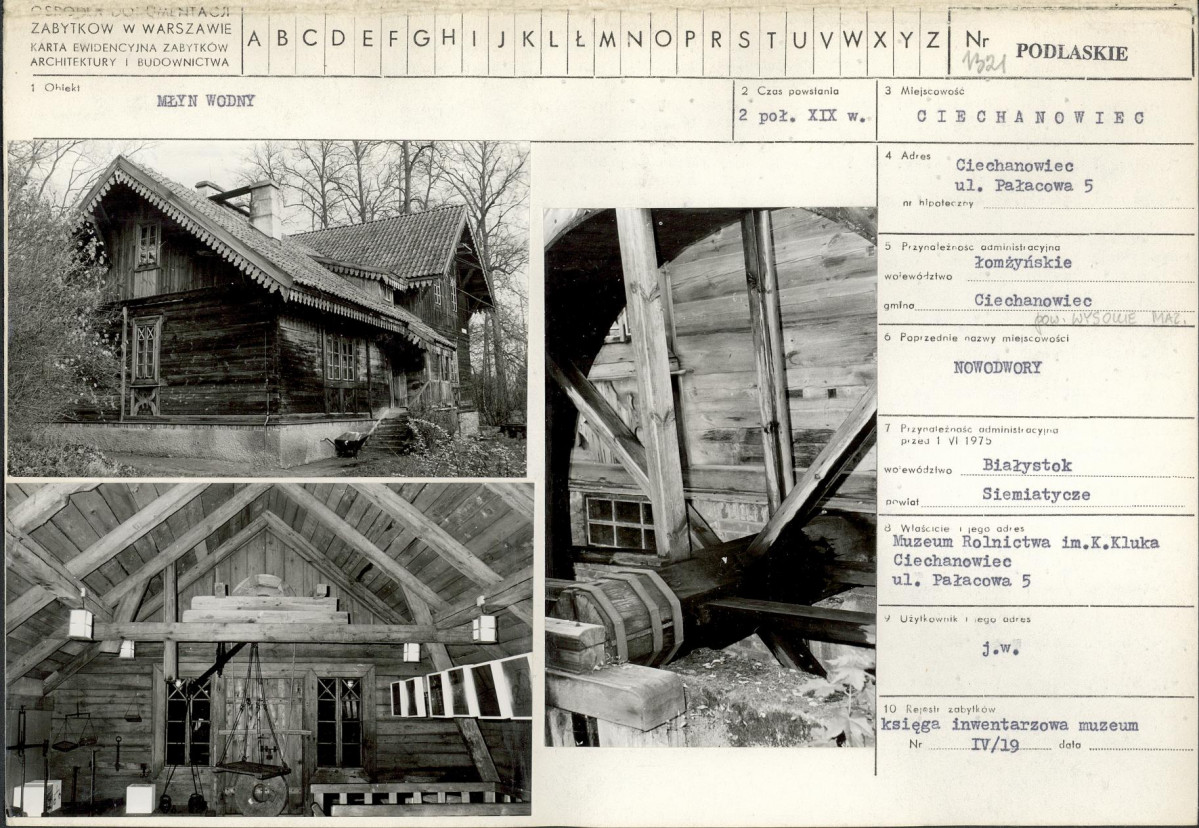 OŚRODEK DOKUMENTACJI
ZABYTKÓW W WARSZAWIE
KARTA EWIDENCYJNA ZABYTKÓW
ARCHITEKTURY I BUDOWNICTWA
A B C D E F G H I J K L Ł M N O P R S T U V W X Y Z
Nr 1321 PODLASKIE
1 Obiekt
MŁYN WODNY
2 Czas powstania
2 poł. XIX w.
3 Miejscowość
CIECHANOWIEC
4 Adres
Ciechanowiec
ul. Pałacowa 5
nr hipoteczny
5 Przynależność administracyjna
łomżyńskie
województwo
gmina Ciechanowiec
pow. WYSOKIE MAZ.
6 Poprzednie nazwy miejscowości
NOWODWORY
7 Przynależność administracyjna
przed 1 VI 1975
województwo Białystok
powiat Siemiatycze
8 Właściciel i jego adres
Muzeum Rolnictwa im.K.Kluka
Ciechanowiec
ul. Pałacowa 5
9 Użytkownik i jego adres
j.w.
10 Rejestr zabytków
księga inwentarzowa muzeum
Nr IV/19 data